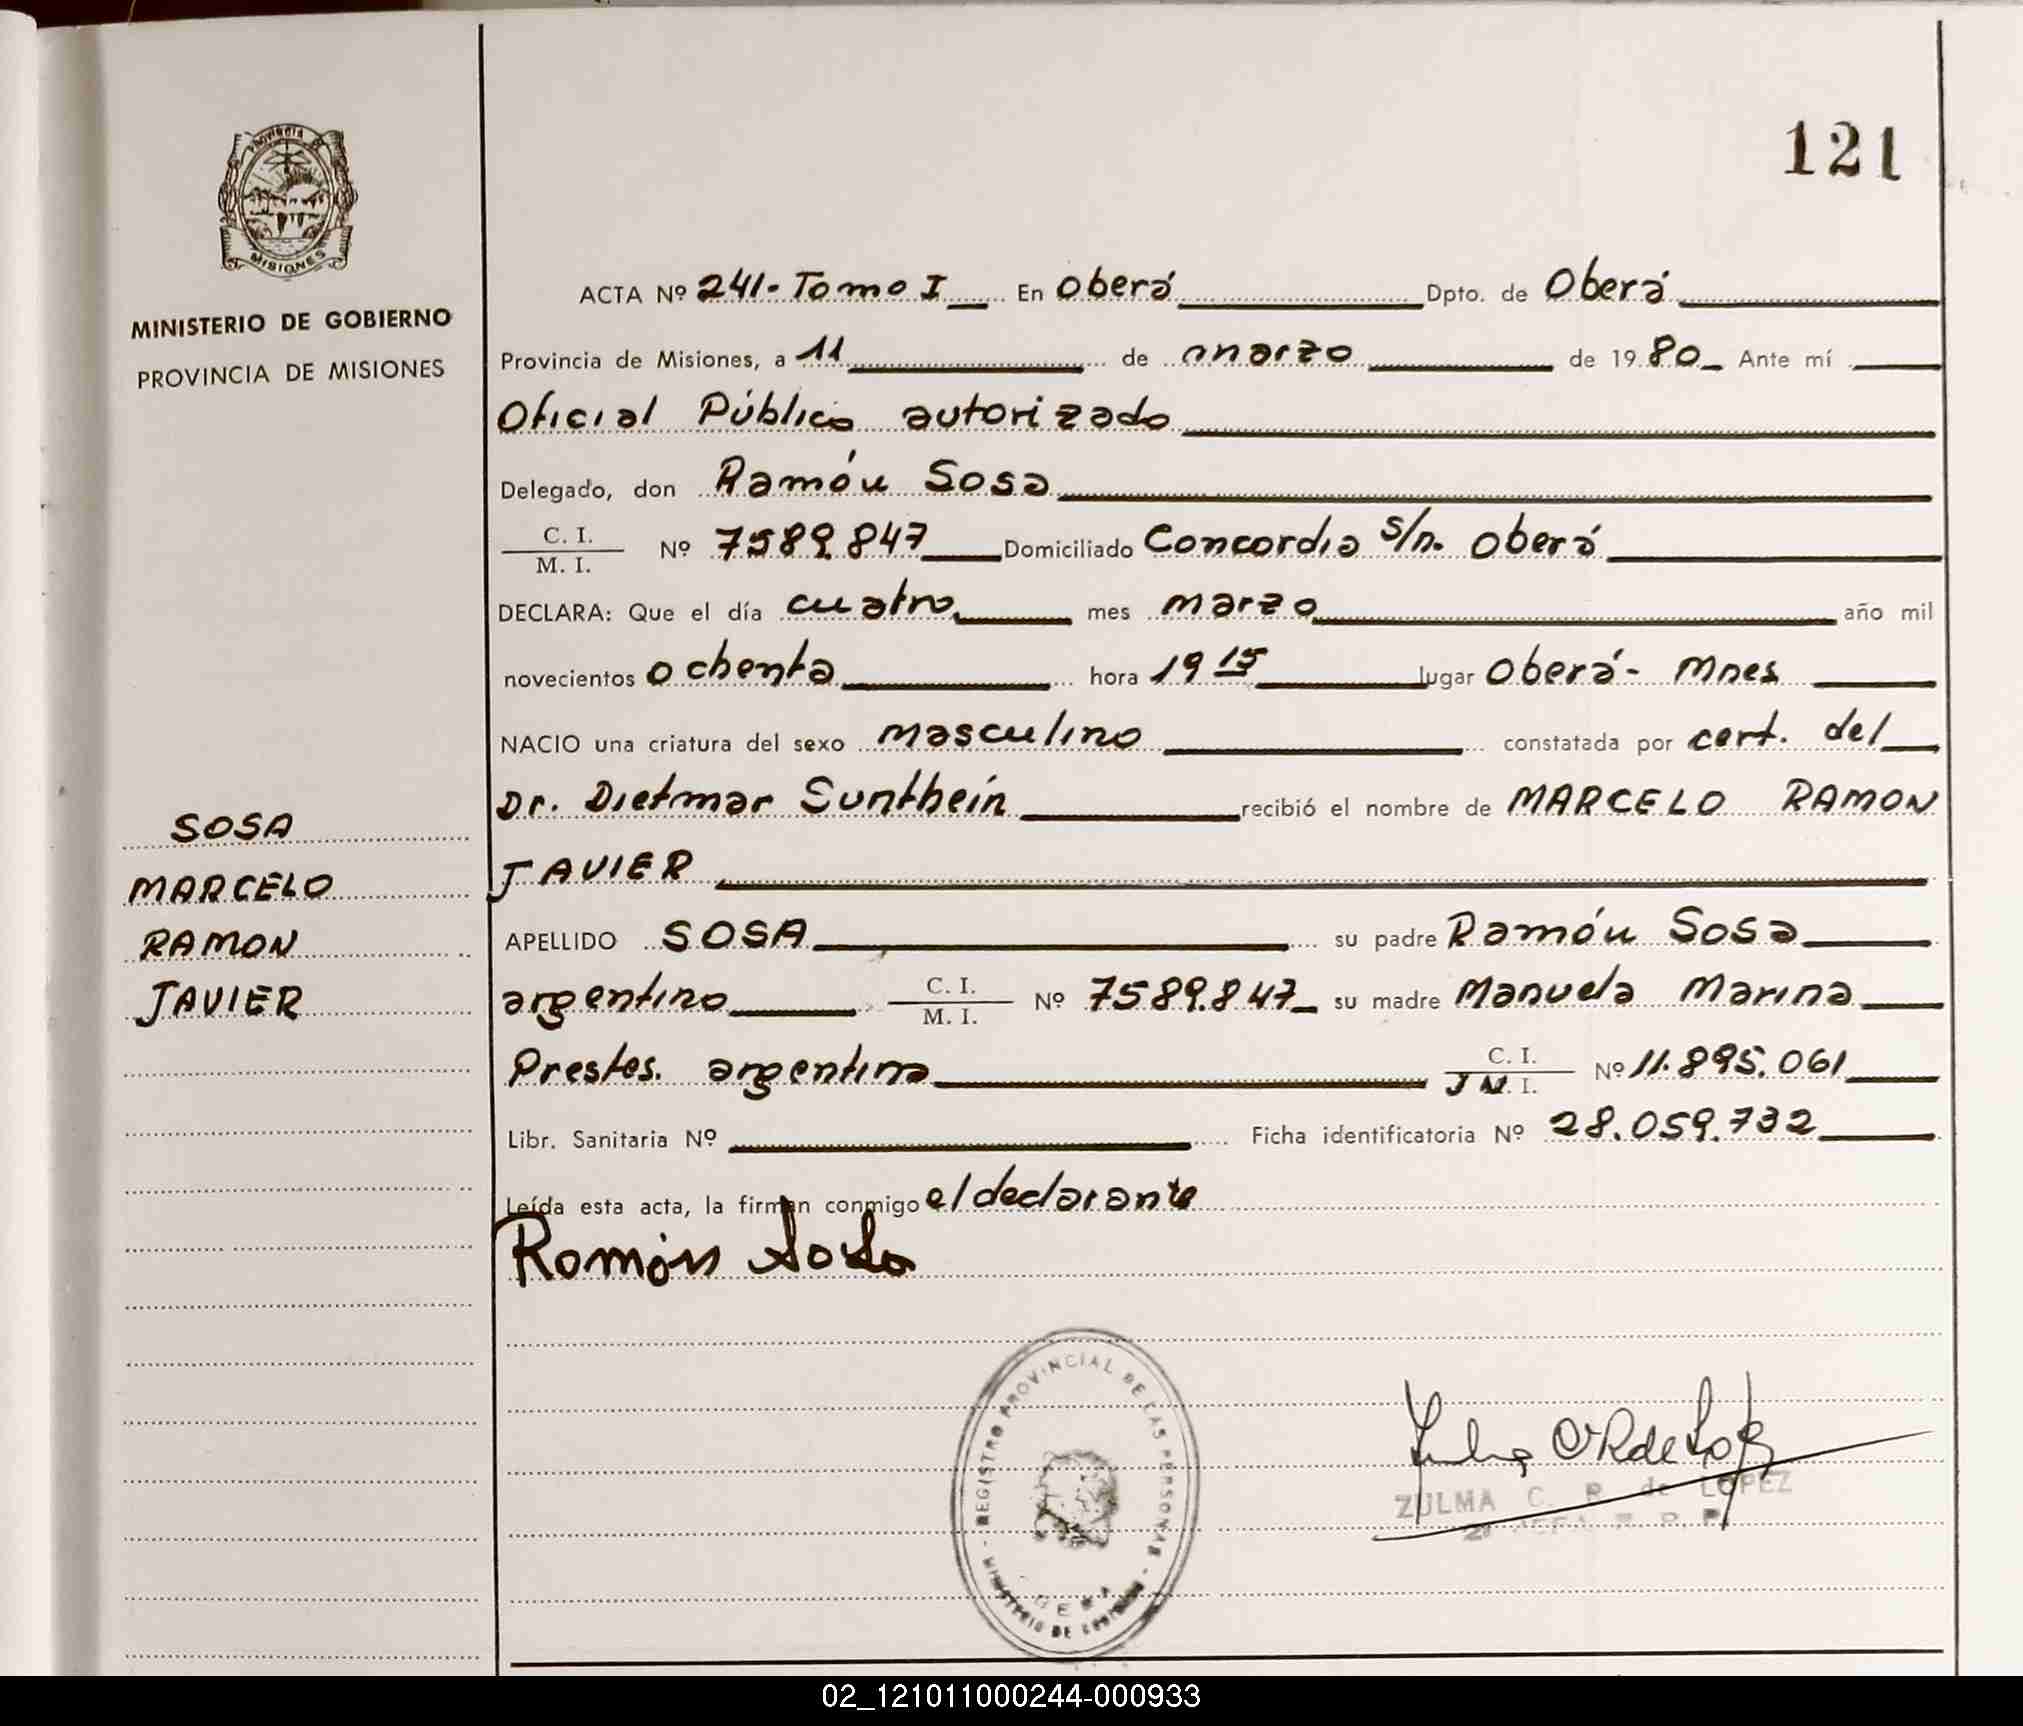 121
Provincia
MISIONES
MINISTERIO DE GOBIERNO
PROVINCIA DE MISIONES
ACTA Nº 241- Tomo I En Oberá Dpto. de Oberá
Provincia de Misiones, a 11 de marzo de 1980 Ante mí
Oficial Público autorizado
Delegado, don Ramón Sosa
C. I.
M. I. Nº 7589.847 Domiciliado Concordia s/n. Oberá
DECLARA: Que el día cuatro mes marzo año mil
novecientos ochenta hora 19 15 lugar Oberá- Mnes
NACIO una criatura del sexo masculino constatada por cert. del
Dr. Dietmar Sunthein recibió el nombre de MARCELO RAMON
JAVIER
APELLIDO SOSA su padre Ramón Sosa
argentino C. I. M. I. Nº 7589.847 su madre Manuela Marina
Prestes. argentina C. I. M. I. Nº 11.895.061
Libr. Sanitaria Nº Ficha identificatoria Nº 28.059.732
Leída esta acta, la firman conmigo el declarante
Ramón Sosa
SOSA
MARCELO
RAMON
JAVIER
REGISTRO PROVINCIAL DE LAS PERSONAS - MINISTERIO DE GOBIERNO -
ZULMA C. R. de LOPEZ
02_121011000244-000933